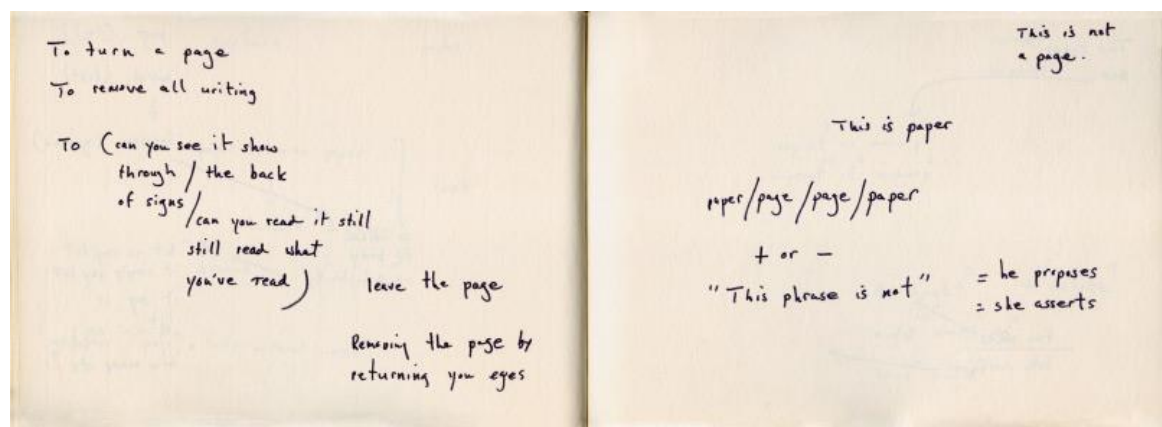 To turn a page
To remove all writing
To (can you see it show
through / the back
of signs /
can you read it still
still read what
you've read)
leave the page
Removing the page by
returning you eyes
This is not
a page.
This is paper
paper/page/page/paper
+ or -
"This phrase is not"
= he proposes
= she asserts